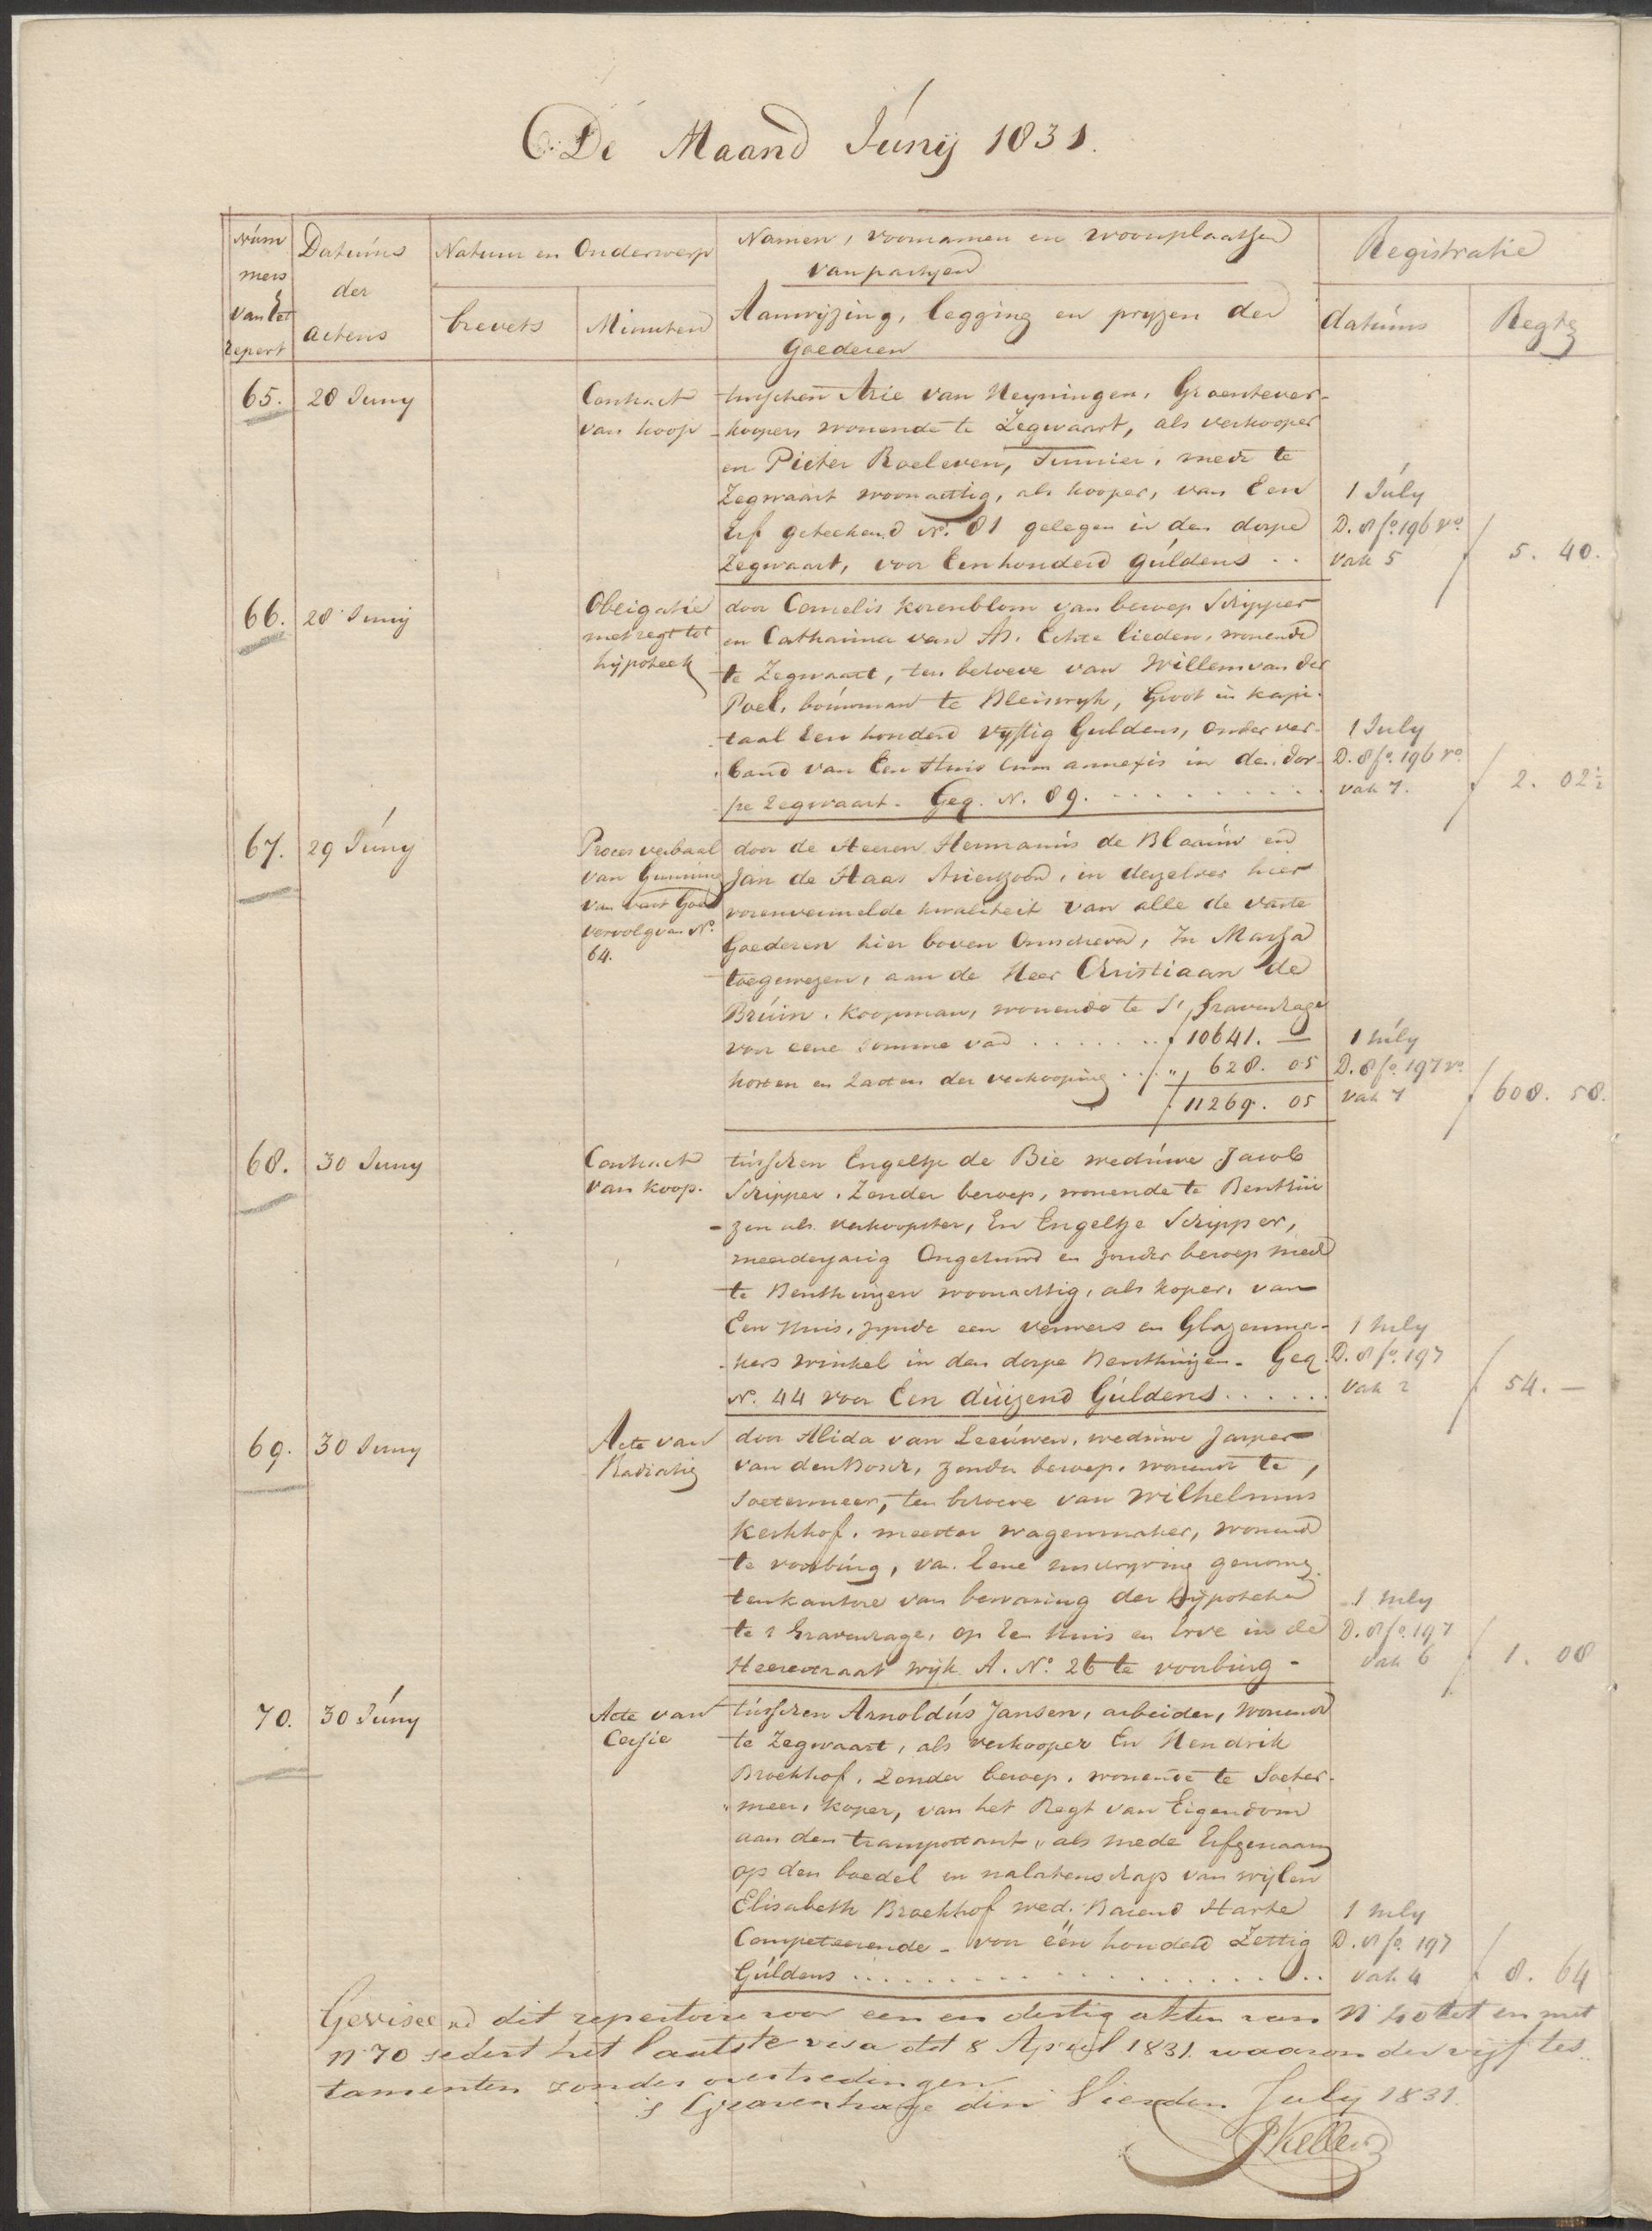 De Maand Junij 1831.
Num
mers
van het
repert
Datums
der
actens
Natuur en Onderwerp
brevets
Minuten
Namen, voornamen en woonplaatsen
van partyen
Aanwyzing, legging en pryzen der
Goederen
Registratie
datums
Regte
65.
28 Juny
Contract
van koop
tusschen Arie van Heyningen, Groentever-
koopers wonende te Zegwaart, als verkooper
en Pieter Roeleven, Tuinier, mede te
Zegwaart woonachtig, als kooper, van Een
Erf geteekend No. 81 gelegen in den dorpe
Zegwaart, voor Eenhonderd guldens . .
1 July
D. 8 fo. 196 vo
vak 5
f 5. 40.
66.
28 Juny
Obligatie
met regt tot
hypoteek
door Cornelis Korenblom van beroep Schipper
en Catharina van As. Echte lieden, wonende
te Zegwaart, ten behoeve van Willem van der
Poel, bouwman te Bleiswyk, Groot in kapi-
taal Een honderd Vyftig Guldens, onder ver-
band van Een Huis cum annexis in den dor-
pe Zegwaart. Geq. N. 89.
1 July
D. 8 fo. 196 vo
vak 7.
f 2. 02½
67.
29 Juny
Proces verbaal
van Gunning
van vast Goed
vervolg van No.
64.
door de Heeren Hermanus de Blaauw en
Jan de Haas Arieszoon, in derzelver hier
vorenvermelde kwaliteit van alle de vaste
Goederen hier boven Omschreven, In Massa
toegewezen, aan de Heer Christiaan de
Bruin, koopman, wonende te S' Gravenhage
voor eene somme van . . . . . . . f 10641. —
kosten en Lasten der verkooping . . . " 628. 05
f 11269. 05
1 July
D. 8 fo. 197 vo.
vak 7
f 608. 58.
68.
30 Juny
Contract
van koop.
tusschen Engeltje de Bie weduwe Jacob
Schipper, Zonder beroep, wonende te Benthui
- zen als verkoopster, En Engeltje Schipper,
meerderjarig Ongehuwd en zonder beroep mede
te Benthuizen woonachtig, als koper, van
Een Huis, zynde een ververs en Glazenma-
kers winkel in den dorpe Benthuizen. Geq.
No. 44 voor Een duizend Guldens . . . . . .
1 July
D. 8 fo. 197
Vak 2
f 54. —
69.
30 Juny
Acte van
Radiatie
door Alida van Leeuwen, weduwe Jasper
van den Bosch, zonder beroep, wonende te
Soetermeer, ten behoeve van Wilhelmus
Kerkhof, meester wagenmaker, wonend
te voorburg, van Eene inschryving genomen
ten kantore van bewaring der hypotheken
te s Gravenhage, op Een Huis en Erve in de
Heerestraat wyk A. No. 26 te voorburg -
1 July
D. 8 fo. 197
Vak 6
f 1. 08
70.
30 Juny
Acte van
Cessie
tusschen Arnoldus Jansen, arbeider, Wonend
te Zegwaart, als verkooper En Hendrik
Broekhof, Zonder beroep, wonende te Soeter-
meer, koper, van het Regt van Eigendom
aan den transportant, als mede Erfgenaam
op den boedel en nalatenschap van wylen
Elisabeth Broekhof wed. Barend Harte
Competeerende - voor één honderd Zestig
Guldens . . . . . . . . . . . . . . . . .
1 July
D. 8 fo. 197
vak 4
f 8. 64
Geviseerd dit repertoire voor een en dertig akten van No 40 tot en met
No 70 sedert het laatste visa dd 8 April 1831. waaronder vijf tes-
tamenten zonder overtredingen
's Gravenhage den Vierden July 1831.
JKeller